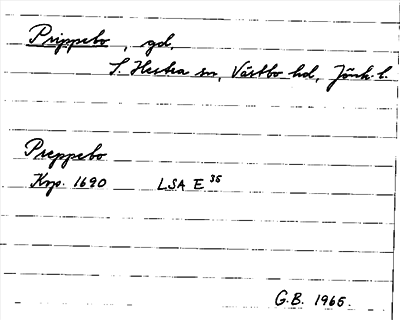 Prippebo, gd,
S. Hestra sn, Västbo hd, Jönk. l.
Preppebo
Krp. 1690 LSA E 36
G.B. 1965.